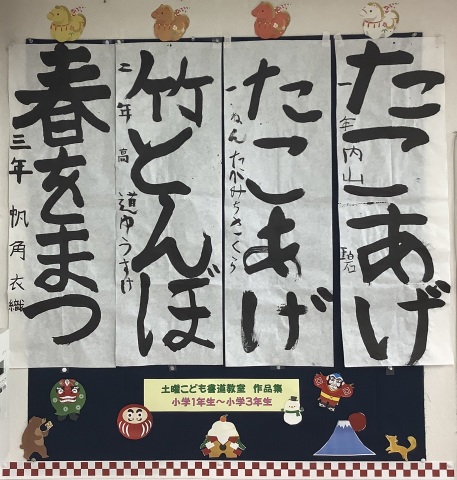 たこあげ
一年 内山 碧
たこあげ
一ねん たかみちさくら
竹とんぼ
二年 高道ゆうすけ
春をまつ
三年 帆角衣織
土曜こども書道教室 作品集
小学1年生～小学3年生